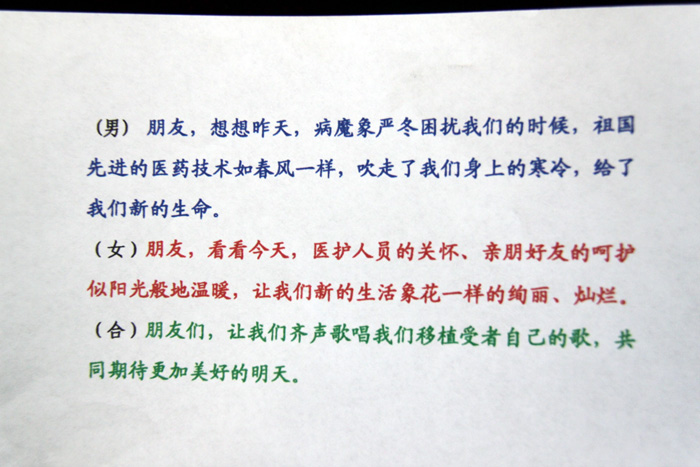 （男） 朋友，想想昨天，病魔象严冬困扰我们的时候，祖国
先进的医药技术如春风一样，吹走了我们身上的寒冷，给了
我们新的生命。
（女）朋友，看看今天，医护人员的关怀、亲朋好友的呵护
似阳光般地温暖，让我们新的生活象花一样的绚丽、灿烂。
（合）朋友们，让我们齐声歌唱我们移植受者自己的歌，共
同期待更加美好的明天。